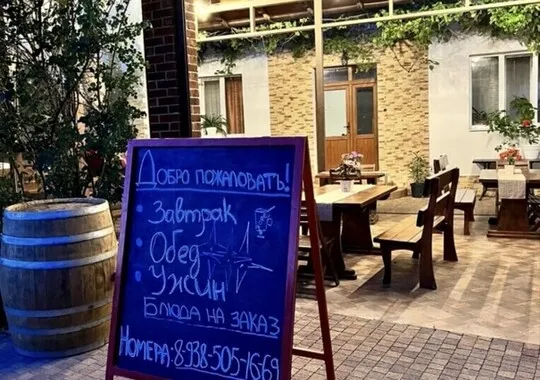 Добро пожаловать!
• Завтрак
• Обед
• Ужин
Блюда на заказ
Номера: 8-938-505-16-69